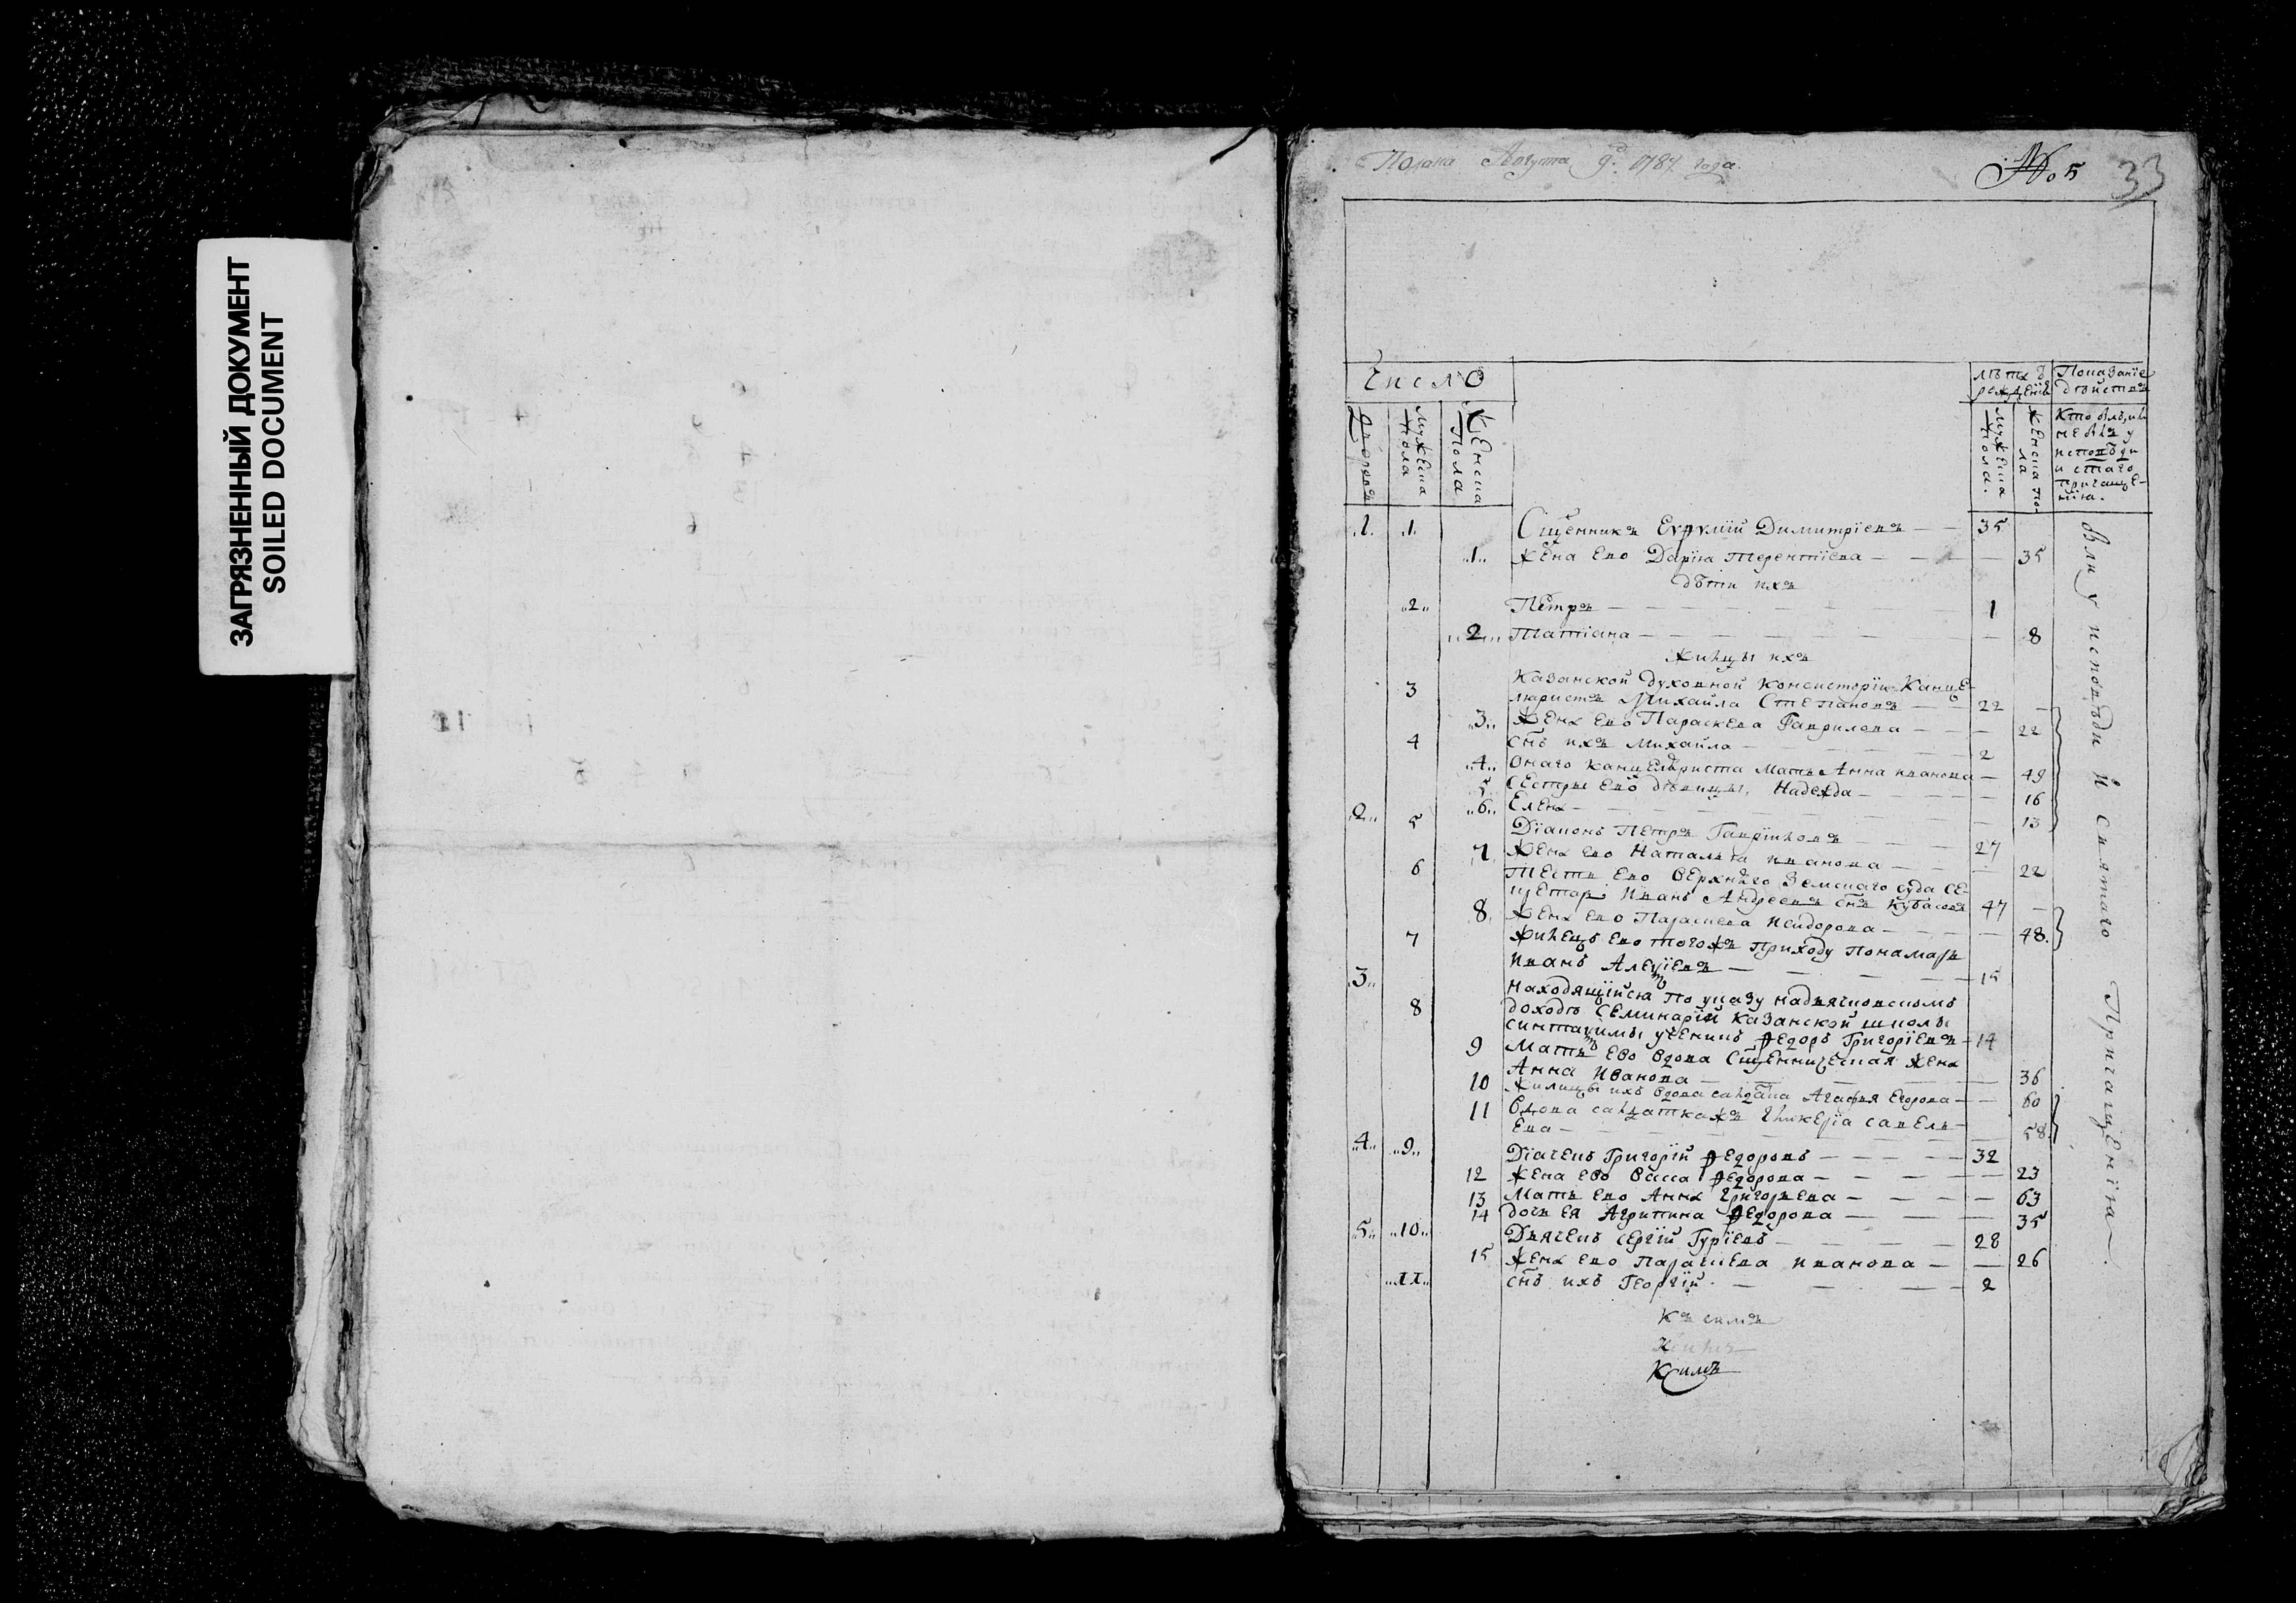 ЗАГРЯЗНЕННЫЙ ДОКУМЕНТ
SOILED DOCUMENT
Подана Августа 9г. 1787 года.
№ 5
33
Число
лѣтъ ѿ рожденія
Показаніе дѣйства
Дворовъ
Мужеска пола
Женска пола
Мужеска пола.
Женска пола
Кто былъ, и не былъ у исповѣди и стаго причащенія.
.1. .1. Сщенникъ Еѵѳѵмій Димитріевъ — — 35
.1.. жена Ево Дарія Терентіева — — — — 35
дѣти ихъ
..2.. Петръ — — — — — — 1
..2.. Татіана — — — — — — — 8
жилцы ихъ
3 Казанской духовной консисторіи Канце-
ляристъ Михайла Степановъ — — 22 —
..3.. Жена Ево Параскева Гаврилова — — — 22
4 снъ ихъ Михайла — — — — 2
..4.. Онаго канцеляриста Мать Анна иванова — 49
5 Сестры Ево дѣвицы, Надежда — — — — 16
..6.. Елена — — — — — — 13
.2.. 5 Діаконъ Петръ Гавріиловъ — — — 27
7 Жена Ево Наталья иванова — — — 22
6 Тесть Ево Верхняго Земскаго суда Се-
цретарь Иванъ Андреевъ снъ Кубасовъ 47 —
8. Жена Ево Параскева Исидорова — — — — 48.
7 Жилецъ Ево тогожъ приходу Понамарь
Иванъ Алеѯіевъ — — — — 15
.3..
8 Находящійся по указу надьячковскомъ
доходѣ Семинаріи Казанской школы
синтаѯимы ученикъ Ѳедоръ Григоріевъ — 14
9 Мать Ево вдова Сщенническая жена
Анна Иванова — — — — — 36
10 Жилицы ихъ вдова салдатка Агафья Егорова — — 60
11 Вдова салдаткажъ Гликерія савель-
ева — — — — — — 58.
.4.. ..9.. Діачекъ Григорій Ѳедоровъ — — — — 32
12 Жена Ево Васса Ѳедорова — — — — — 23
13 Мать Ево Анна Григорьева — — — — 63
14 дочь Ея Агрипина Ѳедорова — — — 35
.5.. ..10.. Дьячекъ Сергій Гуріевъ — — — — 28
15 Жена Ево Параскева иванова — — 26
..11.. снъ ихъ Георгій — — — — 2
были у исповѣди и святаго Причащенія
Къ симъ